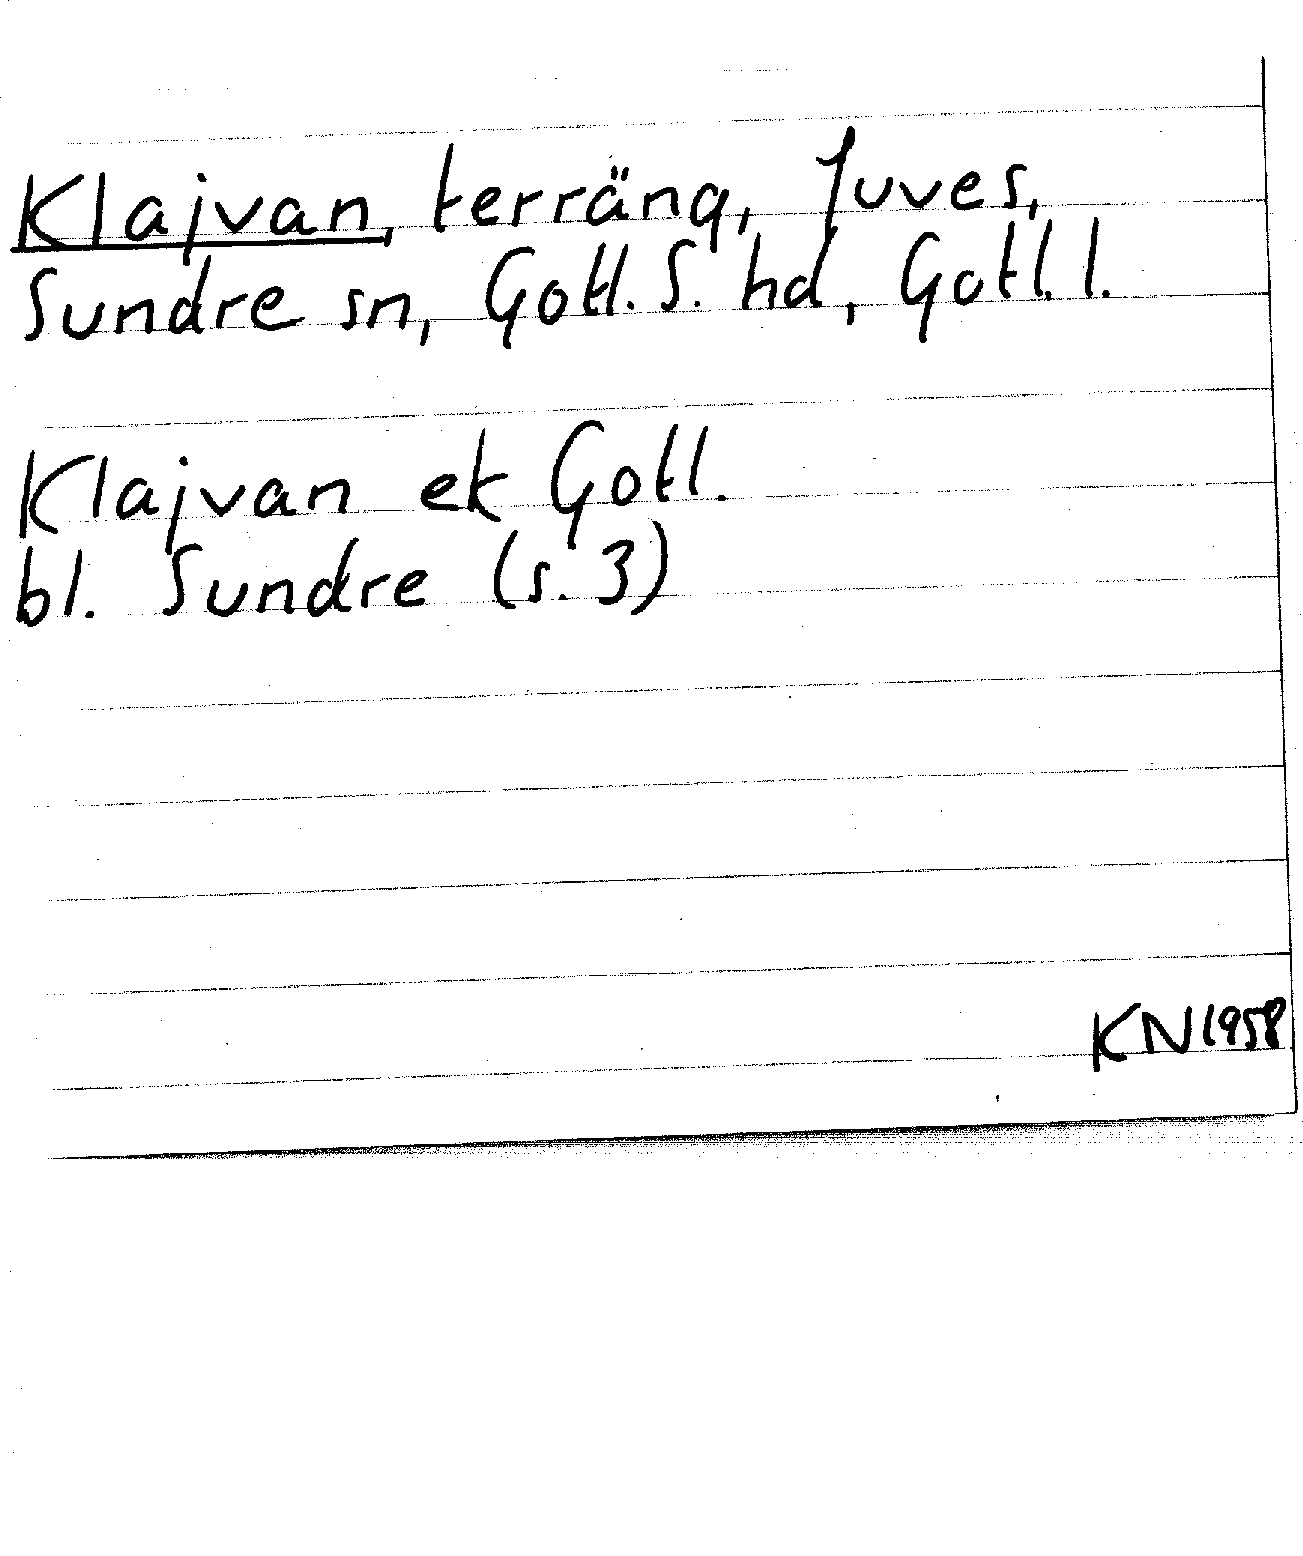 Klajvan, terräng, Juves,
Sundre sn, Gotl. S. hd, Gotl. l.
Klajvan ek Gotl.
bl. Sundre (s. 3)
KN 1958